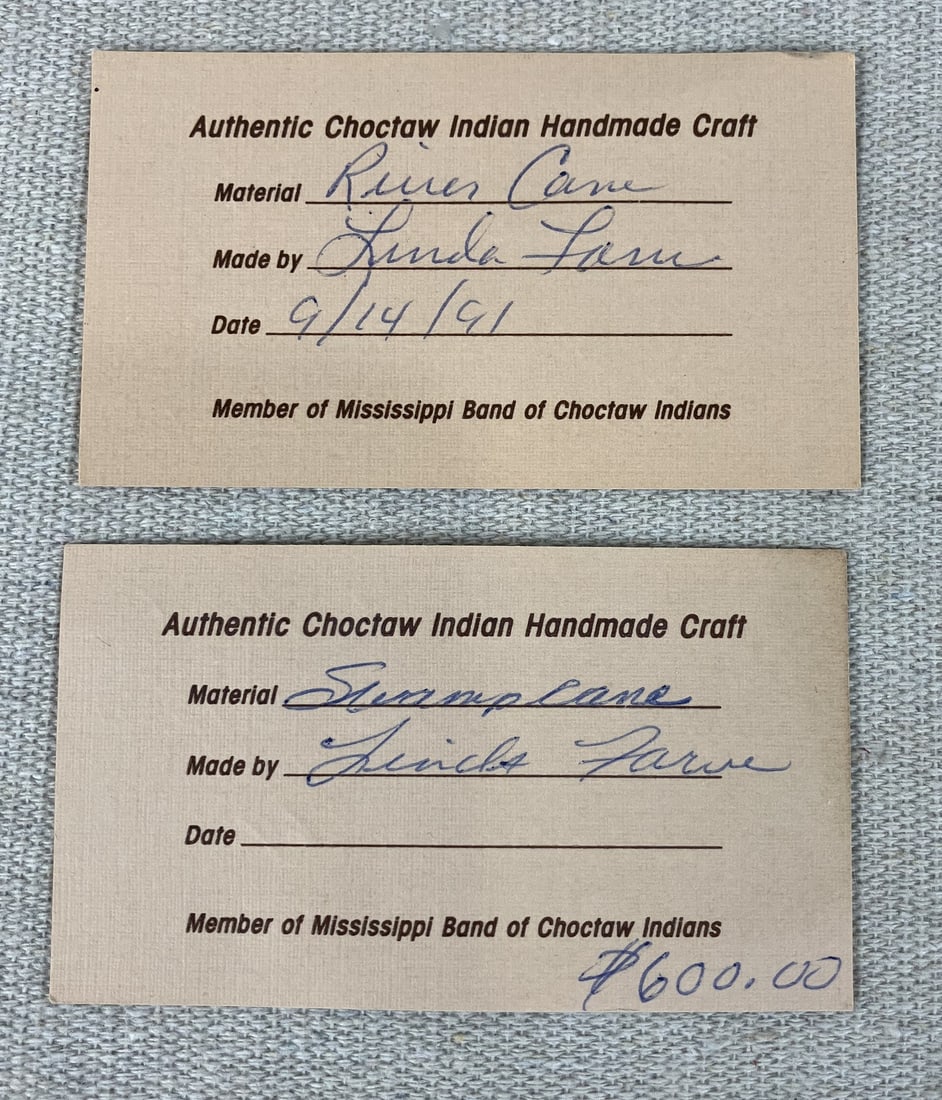 Authentic Choctaw Indian Handmade Craft
Material River Cane
Made by Linda Farve
Date 9/14/91
Member of Mississippi Band of Choctaw Indians
Authentic Choctaw Indian Handmade Craft
Material Swamp cane
Made by Linda Farve
Date
Member of Mississippi Band of Choctaw Indians
$600.00